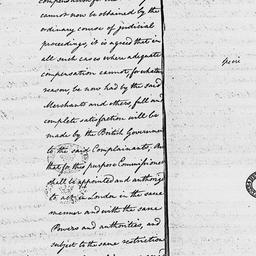 compensation for the
cannot now be obtained by the
ordinary course of judicial
proceedings, it is agreed that in
all such cases where adequate
compensation cannot, for whatever
reason, be now had by the said
Merchants and others, full and
complete satisfaction will be
made by the British Governmen
to the said Complainants, An
that for this purpose Commissioner
shall be appointed and authorized
to act in London in the same
manner and with the same
Powers and authorities, and
subject to the same restriction